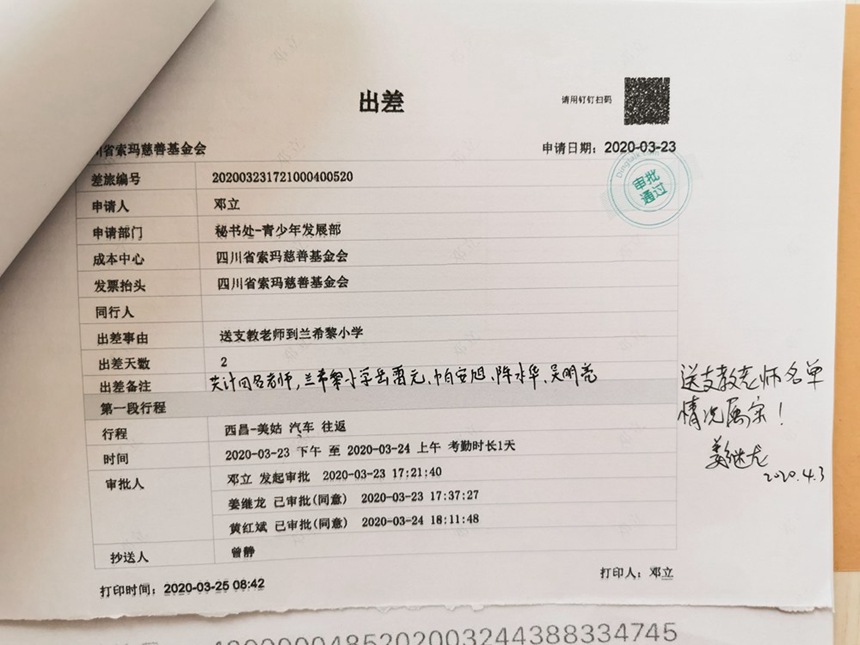 出差
请用钉钉扫码
川省索玛慈善基金会
申请日期：2020-03-23
审批通过
差旅编号 202003231721000400520
申请人 邓立
申请部门 秘书处-青少年发展部
成本中心 四川省索玛慈善基金会
发票抬头 四川省索玛慈善基金会
同行人
出差事由 送支教老师到兰希黎小学
出差天数 2
出差备注 共计四名老师，兰希黎小学岳雷元、帕安旭、陈水华、吴明亮
送支教老师名单
情况属实！
姜继龙
2020.4.3
第一段行程
行程 西昌-美姑 汽车 往返
时间 2020-03-23 下午 至 2020-03-24 上午 考勤时长1天
审批人 邓立 发起审批 2020-03-23 17:21:40
姜继龙 已审批(同意) 2020-03-23 17:37:27
黄红斌 已审批(同意) 2020-03-24 18:11:48
抄送人 曾静
打印时间：2020-03-25 08:42
打印人：邓立
4200000485202003244388334745